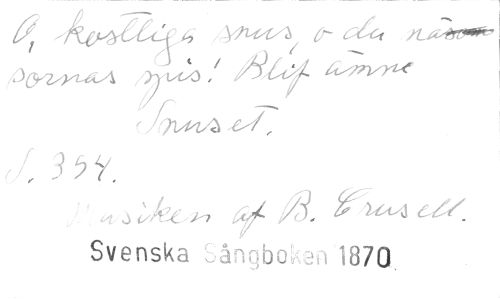 O, kostliga snus, o du nä
sornas spis! Blif ämne
Snuset.
S. 354.
Musiken af B. Crusell.
Svenska Sångboken 1870